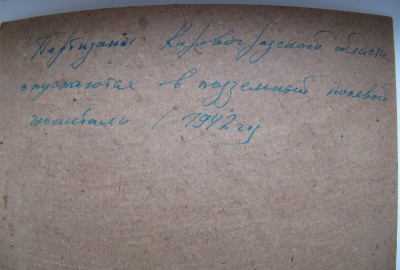 Партизаны Кировоградской области
спускаются в подземный полевой
госпиталь / 1942 г